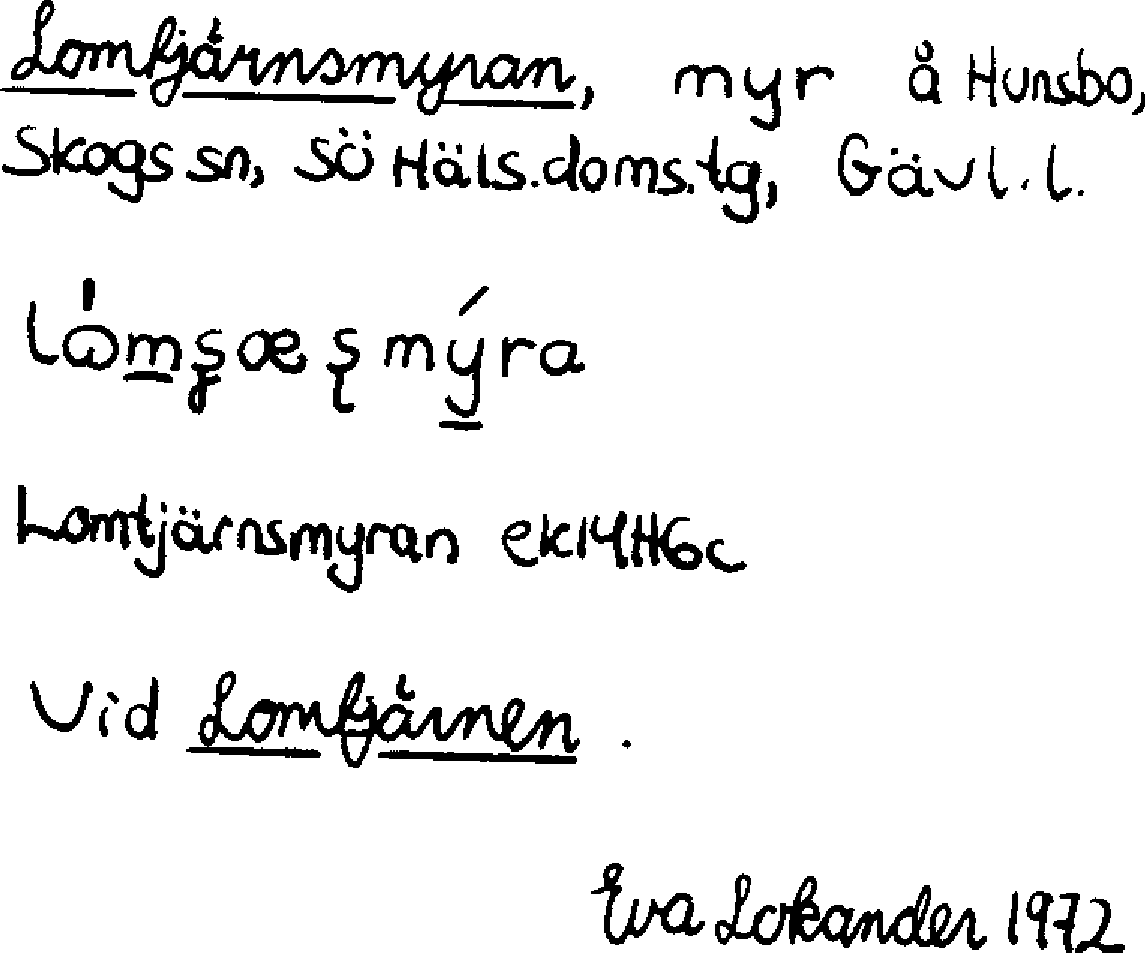 Lomtjärnsmyran, myr å Hunsbo,
Skogs sn, SÖ Häls.doms.tg, Gävl.l.
Lomtjärnsmyran ek14H6c
Vid Lomtjärnen.
Eva Lokander 1972